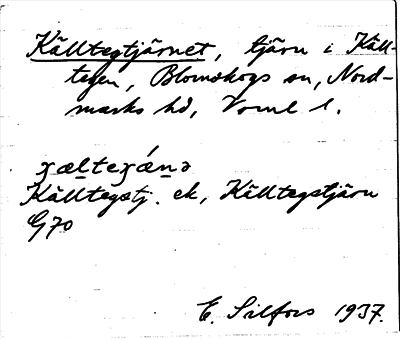 Källtegtjärnet, tjärn i Käll-
tegen, Blomskogs sn, Nord-
marks hd, Verml l.
Källtegstj. ek, Källtegstjärn
G70
E. Silfors 1937.